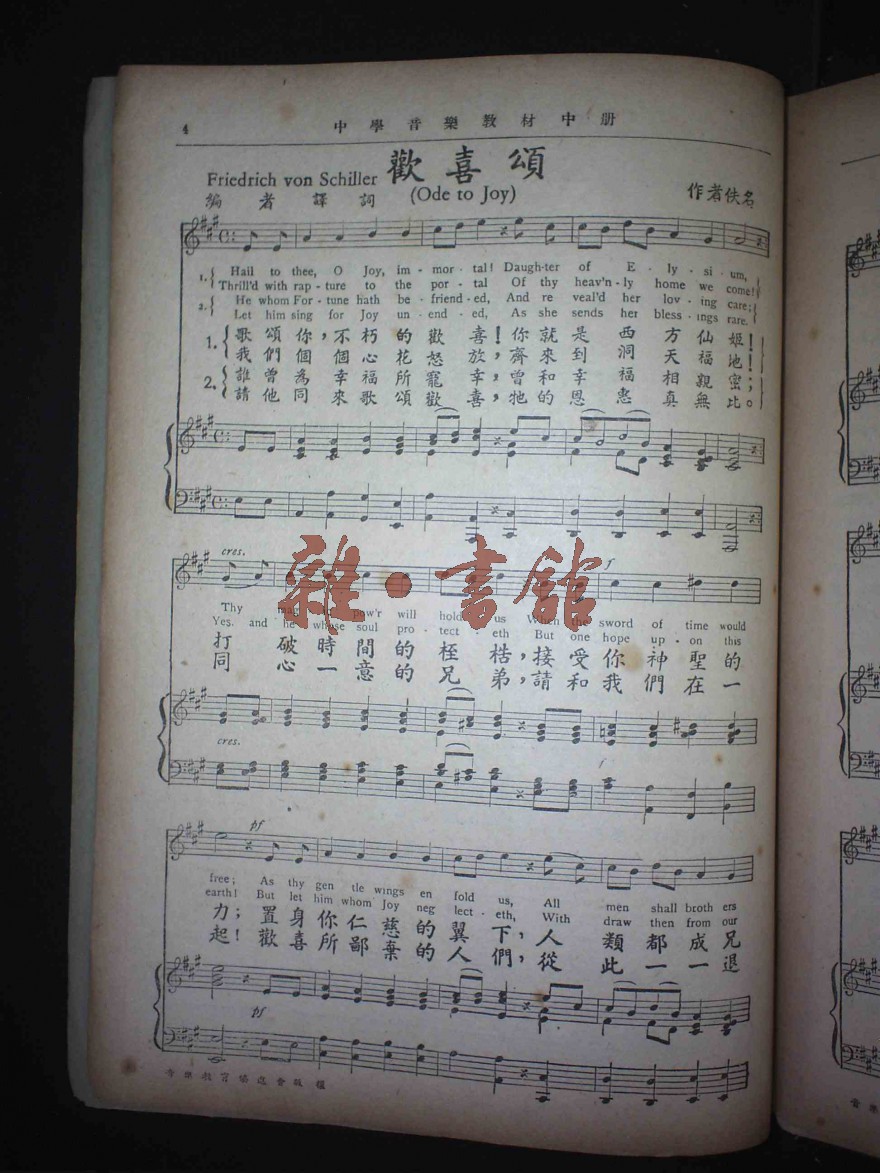 4
中學音樂教材中册
歡喜頌
Friedrich von Schiller
(Ode to Joy)
編者譯詞
作者佚名
1. { Hail to thee, O Joy, im - mor - tal! Daugh-ter of E - ly - si - um,
Thrill'd with rap - ture to the por - tal Of thy heav'n-ly home we come!
2. { He whom For - tune hath be - friend - ed, And re veal'd her lov - ing care;
Let him sing for Joy un - end - ed, As she sends her bless - ings rare.
1. { 歌頌你，不朽的歡喜！你就是西方仙姬！
我們個個心花怒放，齊來到洞天福地！
2. { 誰曾為幸福所寵幸，曾和幸福相親密；
請他同來歌頌歡喜，牠的恩惠真無比。
cres.
f
Thy pow'r will hold us When the sword of time would
Yes, and he whose soul pro - tect - eth But one hope up - on this
打破時間的桎梏，接受你神聖的
同心一意的兄弟，請和我們在一
cres.
f
雜·書館
pf
free; As thy gen tle wings en fold us, All men shall broth ers
earth! But let him whom Joy neg lect - eth, With draw then from our
力；置身你仁慈的翼下，人類都成兄
起！歡喜所鄙棄的人們，從此一一退
pf